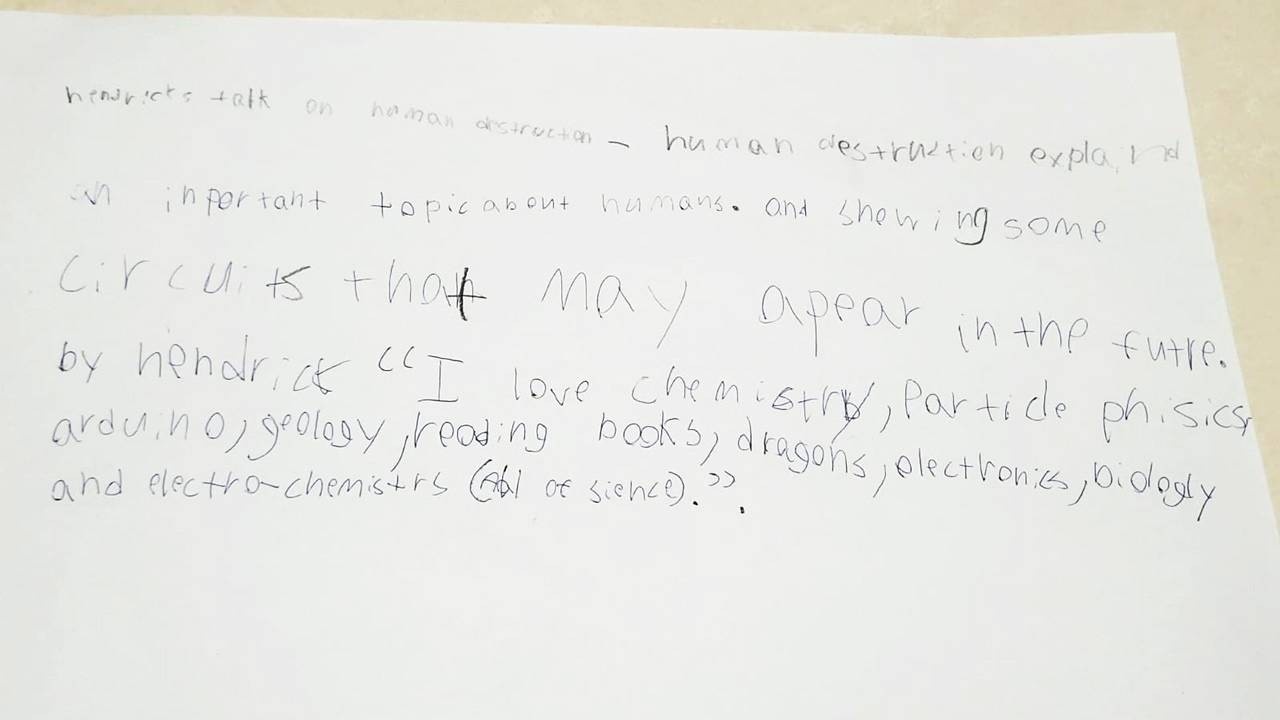 hendricks talk on human destructon - human destruction explaind
an inportant topic about humans. and showing some
circuits that may apear in the futre.
by hendrick “I love chemistry, Particle phisics,
arduino, geology, reading books, dragons, electronics, biology
and electro-chemistrs (All of sience).”.